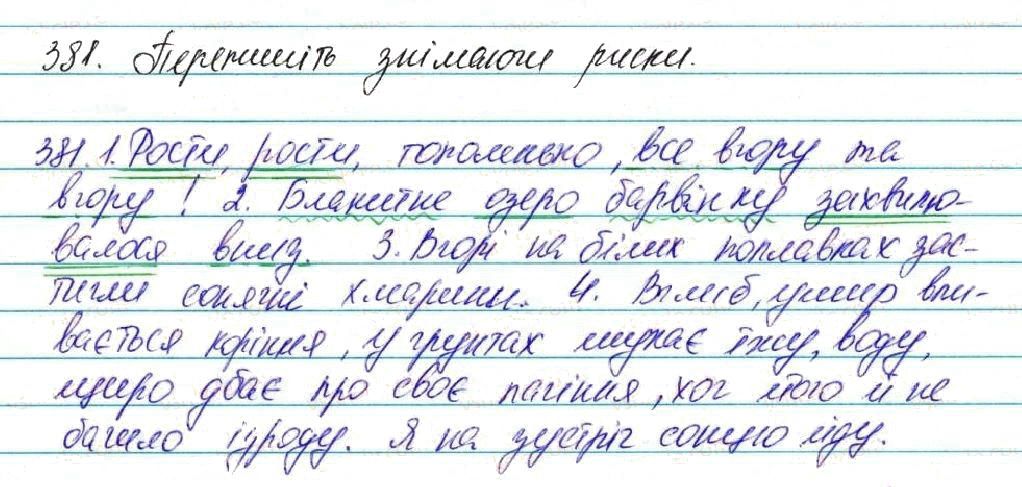 381. Перепишіть знімаючи риски.
381. 1. Рости, рости, тополенько, все вгору та
вгору! 2. Блакитне озеро барвінку захвилю-
валося внизу. 3. Вгорі на білих поплавках зас-
тигли сонячні хмарини. 4. Вглиб, ушир впи-
вається коріння, у грунтах шукає їжу, воду,
щиро дбає про своє пагіння, хоч його й не
бачило ізроду. Я на зустріч сонцю йду.